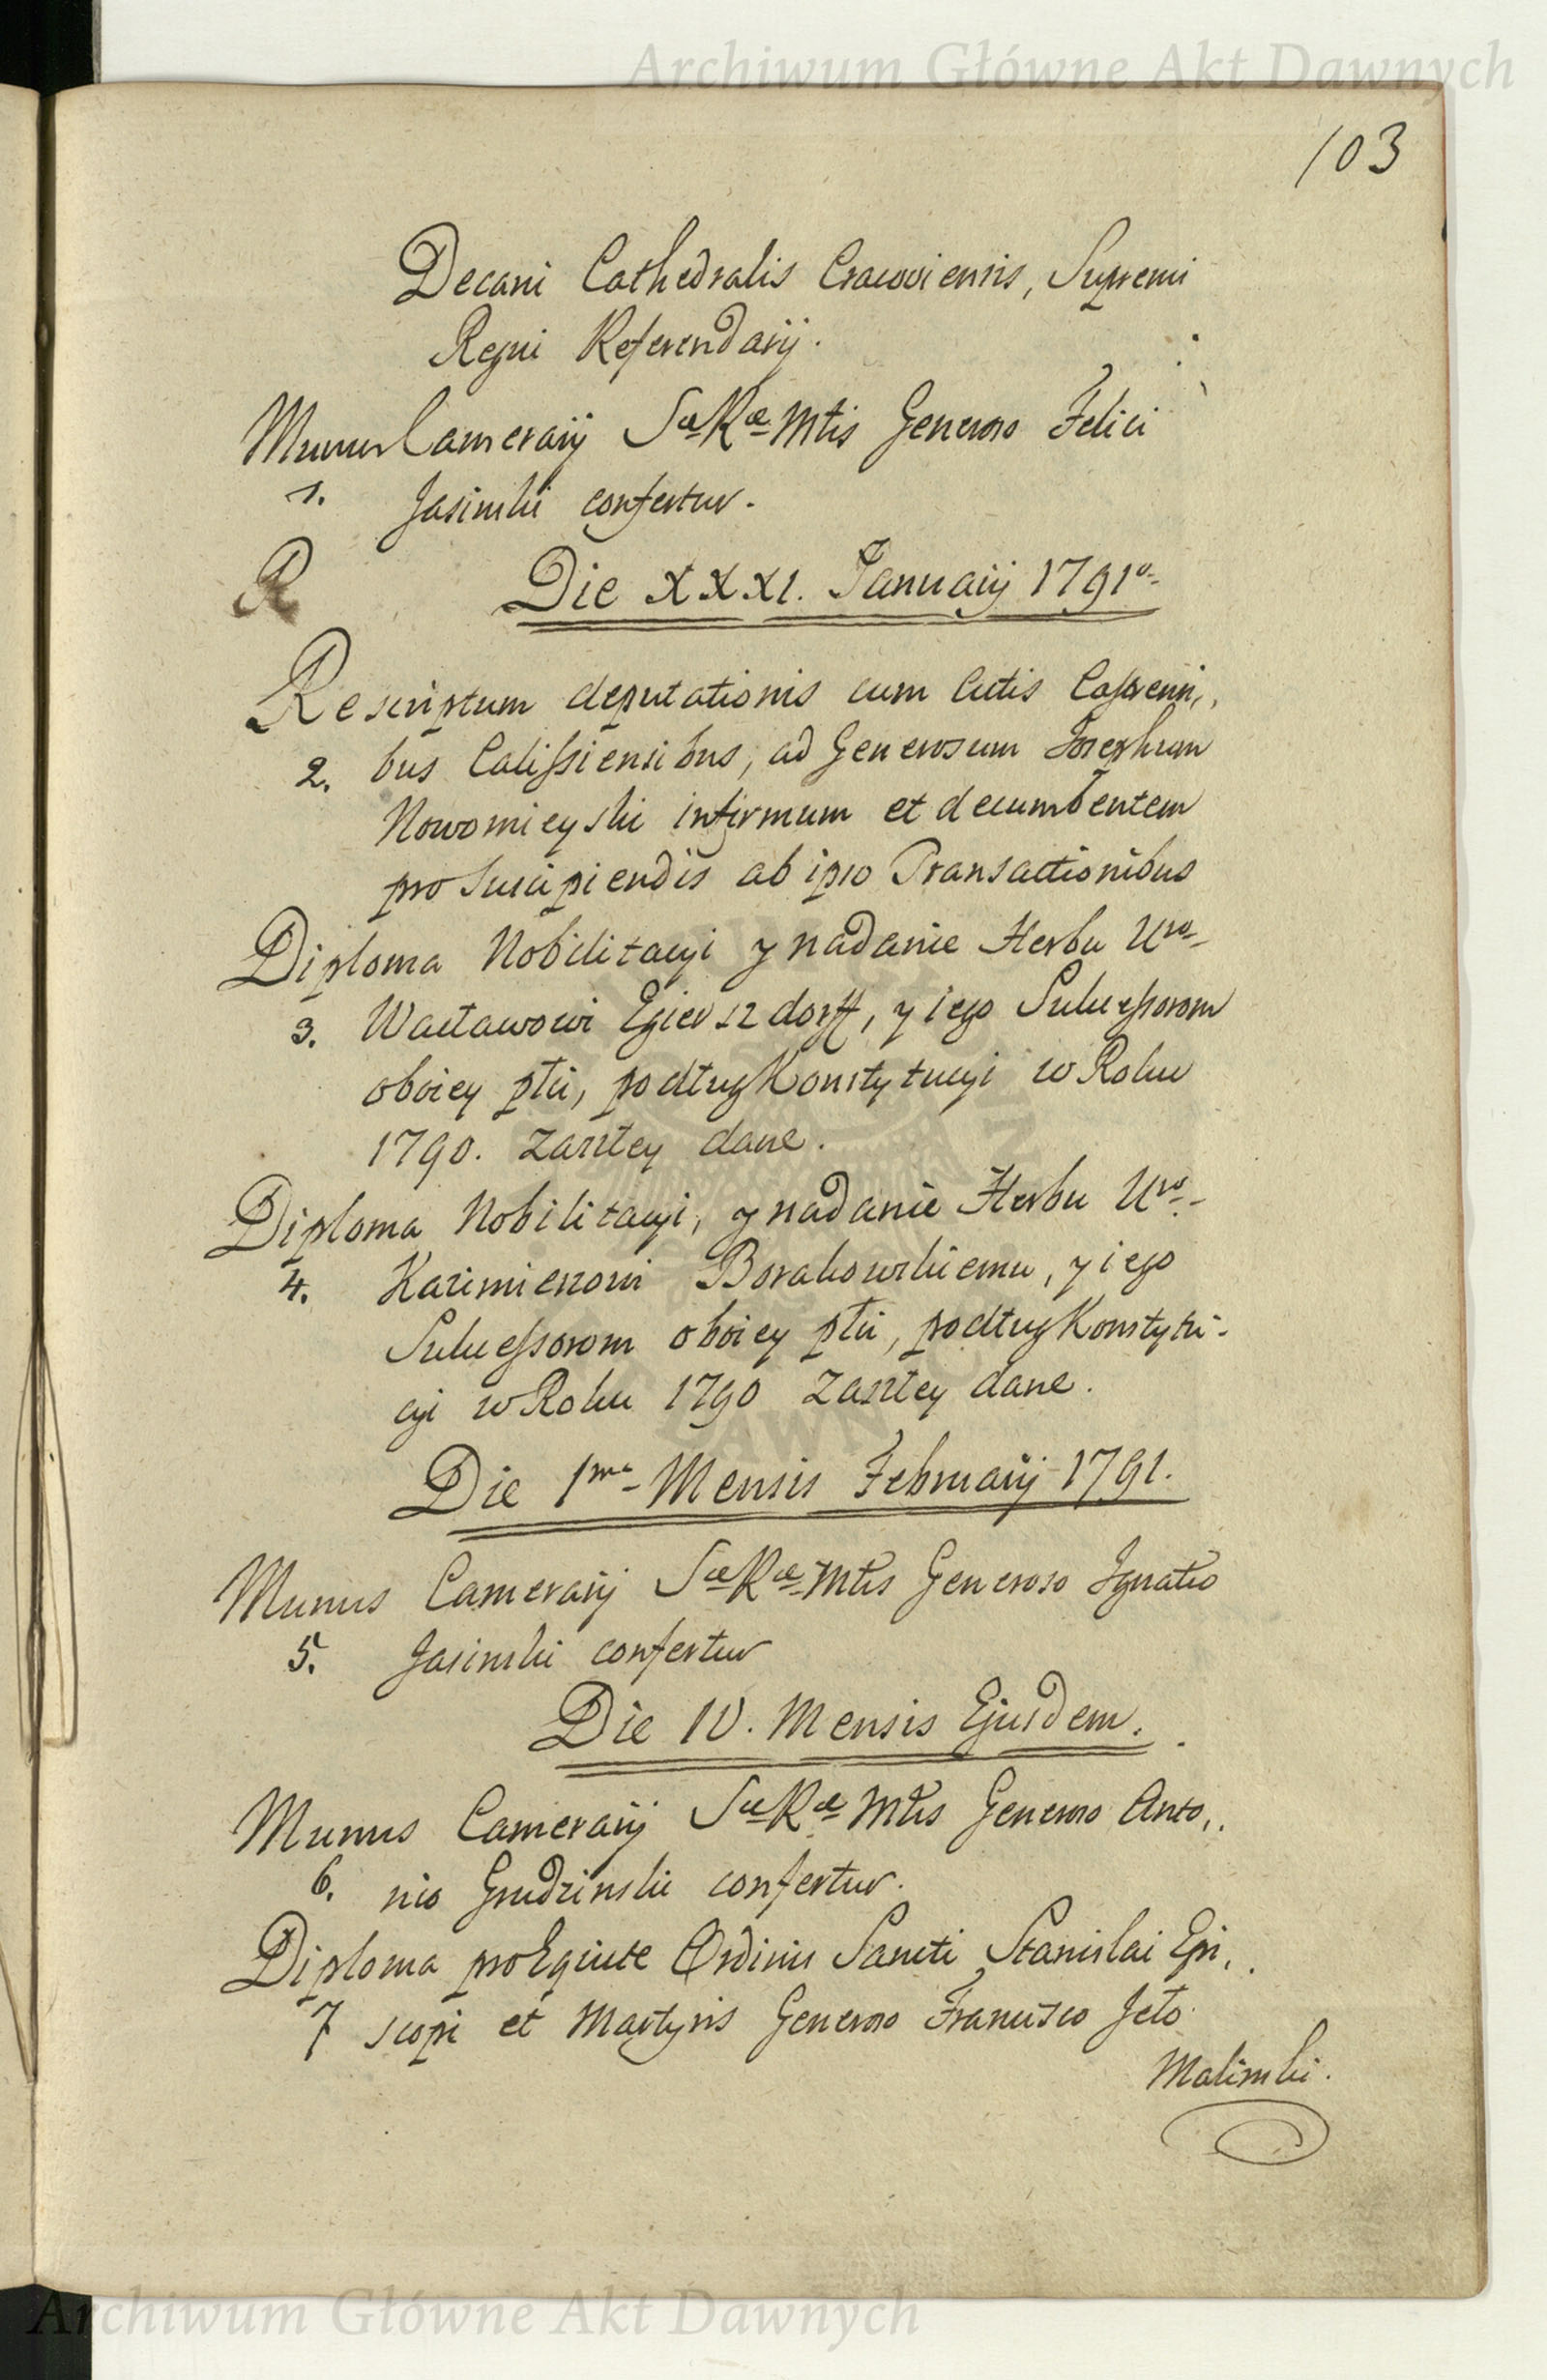 Archiwum Główne Akt Dawnych
103
Decani Cathedralis Cracoviensis, Supremi
Regni Referendarij.
Munus Camerarij Sæ Ræ Mtis Generoso Felici
1. Jasinski confertur.
R Die XXXI. Januarij 1791o
Rescriptum deputationis cum Actis Castren„
2. bus Calissiensibus, ad Generosum Josephum
Nowomieyski infirmum et decumbentem
pro Suscipiendis ab ipso Transactionibus
Diploma Nobilitacyi y nadanie Herbu Uro
3. Wacławowi Egierszdorff, y iego Sukcessorom
oboiey płci, podług Konstytucyi w Roku
1790. zaszłey dane.
Diploma Nobilitacyi, y nadanie Herbu Uro
4. Kazimierzowi Borakowskiemu, y iego
Sukcessorom oboiey płci, podług Konstytu-
cyi w Roku 1790 zaszłey dane.
Die 1ma Mensis Februarij 1791.
Munus Camerarij Sæ Ræ Mtis Generoso Ignatio
5. Jasinski confertur
Die IV. Mensis Ejusdem.
Munus Camerarij Sæ Ræ Mtis Generoso Anto„
6. nio Grudzinski confertur.
Diploma pro Equite Ordinis Sancti Stanislai Epi„
7 scopi et Martyris Generoso Francisco Jeło
Malinski.
Archiwum Główne Akt Dawnych